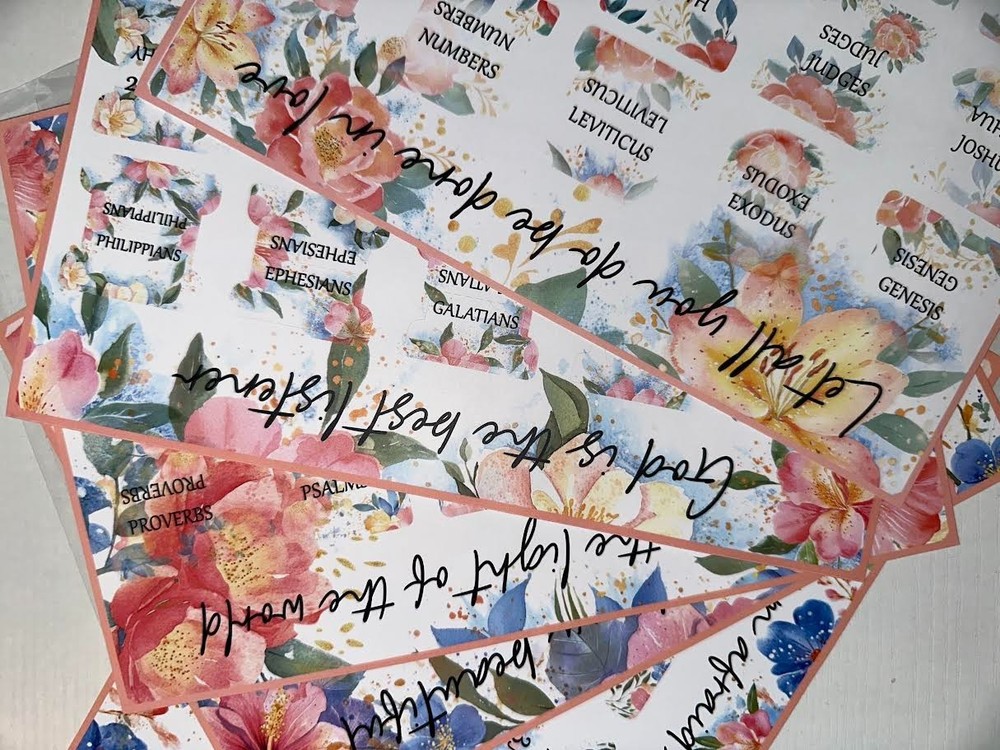 NUMBERS
NUMBERS
LEVITICUS
LEVITICUS
JUDGES
JUDGES
EXODUS
EXODUS
GENESIS
GENESIS
Let all you do be done in love
PHILIPPIANS
PHILIPPIANS
EPHESIANS
EPHESIANS
GALATIANS
God is the best listener
PROVERBS
PROVERBS
the light of the world
beautiful
afraid